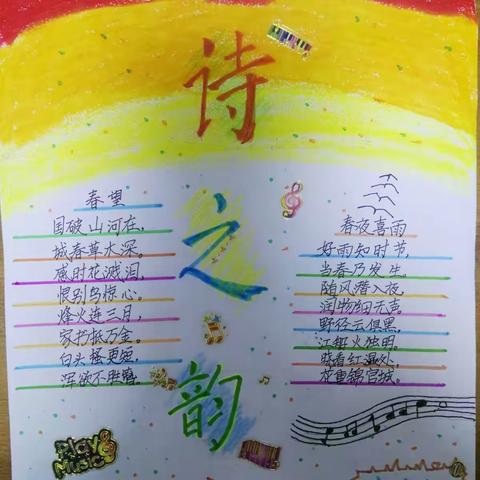 诗之韵
春望
国破山河在，
城春草木深。
感时花溅泪，
恨别鸟惊心。
烽火连三月，
家书抵万金。
白头搔更短，
浑欲不胜簪。
春夜喜雨
好雨知时节，
当春乃发生。
随风潜入夜，
润物细无声。
野径云俱黑，
江船火独明。
晓看红湿处，
花重锦官城。
Play
Music